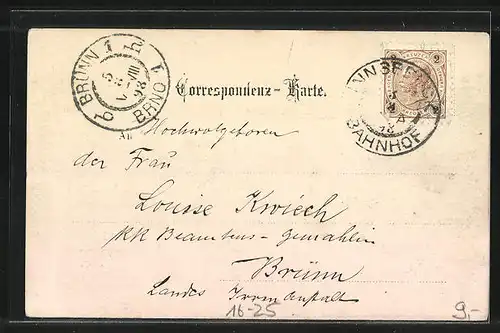 BRÜNN 1 BRNO
5
VIII
98
Correspondenz - Karte.
2 2
INNSBRUCK
BAHNHOF
An Hochwolgeboren
der Frau
Louise Kwiech
KK Beamtens-gemahlin
Brünn
Landes Irrenanstalt
16-25
9.-